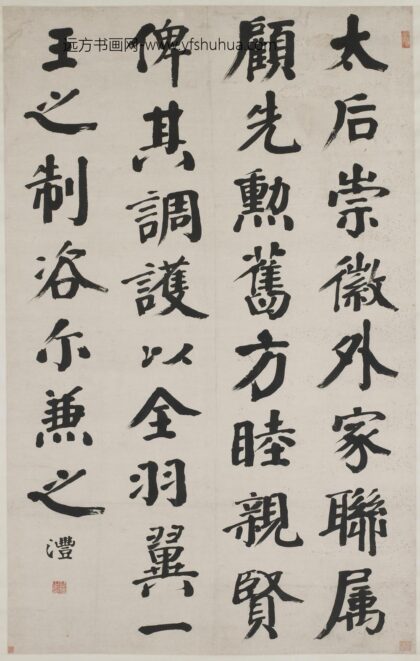 远方书画网-www.yfshuhua.com
太后崇徽外家聯属
顧先勲舊方睦親賢
俾其調護以全羽翼一
王之制咨尓兼之
灃